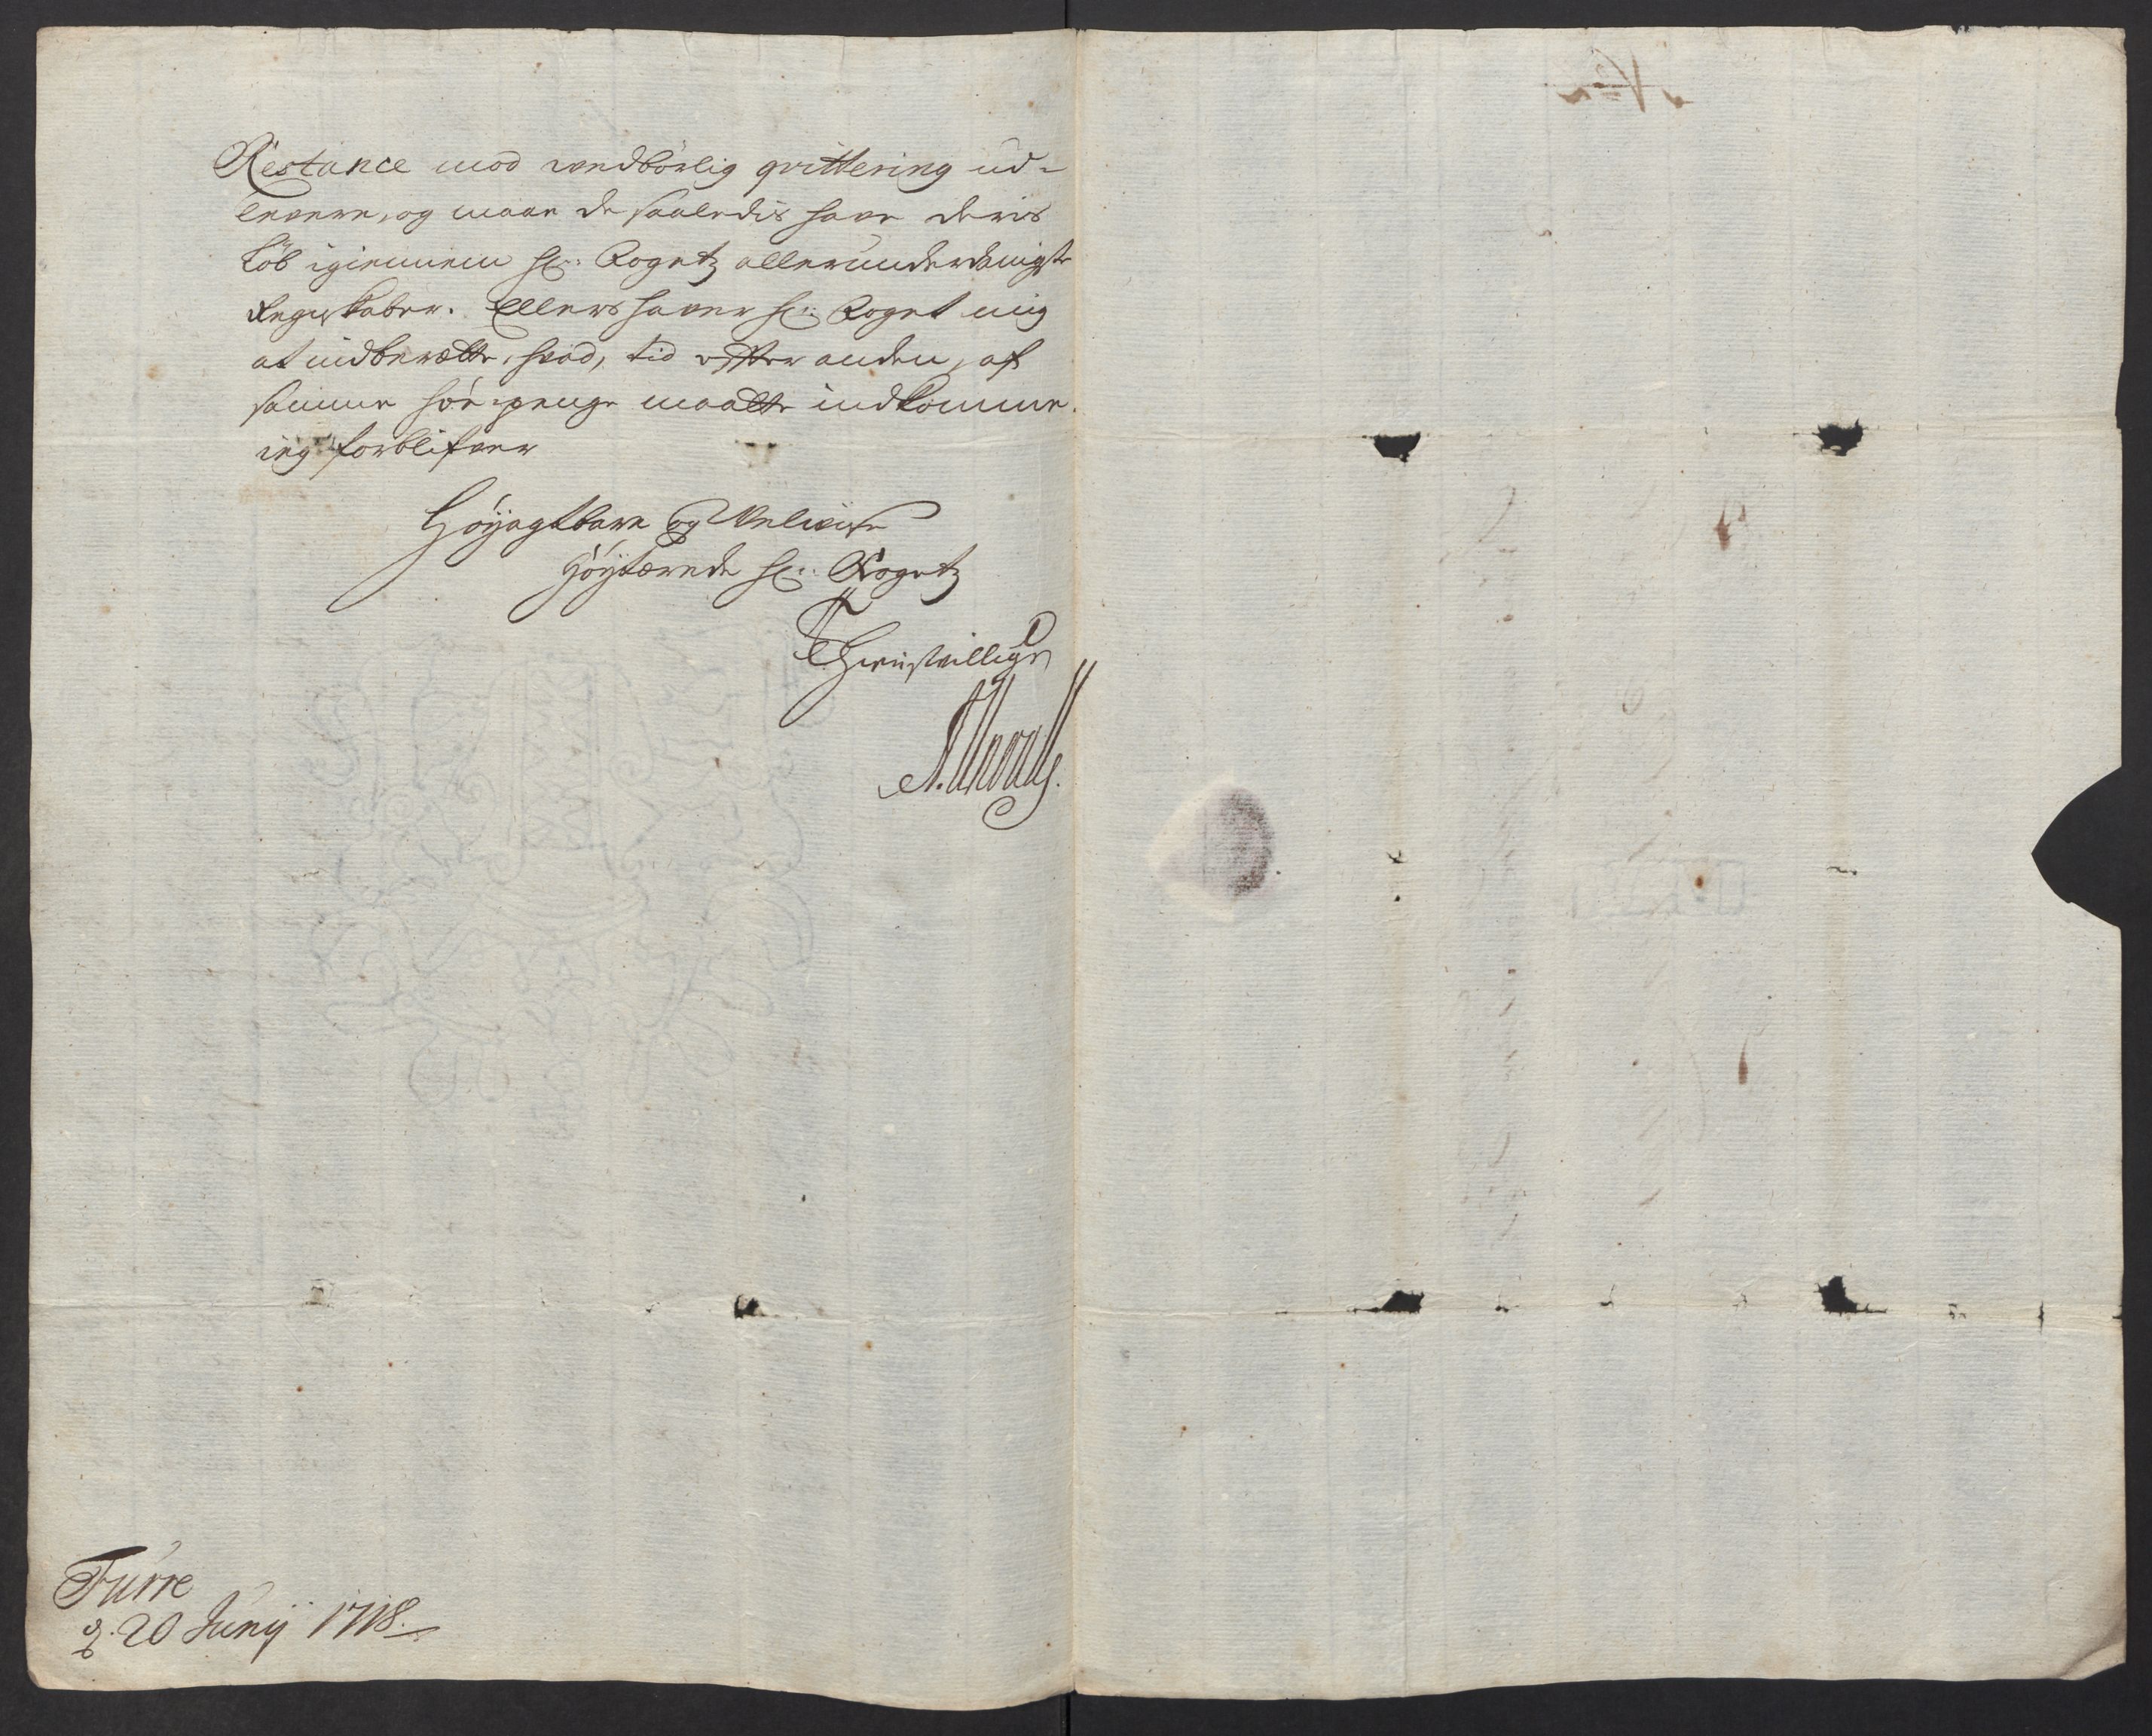 Restance mod vedbörlig qvittering ud-
levere, og maae de saaledis have deris
Löb igiennem Hr: Fogetz allerunderdanigste
Regnskaber. Ellers haver Hr: Foget mig
at indberætte, hvad, tid efter anden, af
samme penge maatte indkomme.
ieg forblifver
Höyagtbare og Velviise
Höytærede Hr: Fogetz
Thienstvilligste
Furre
d. 20 Junij 1718.